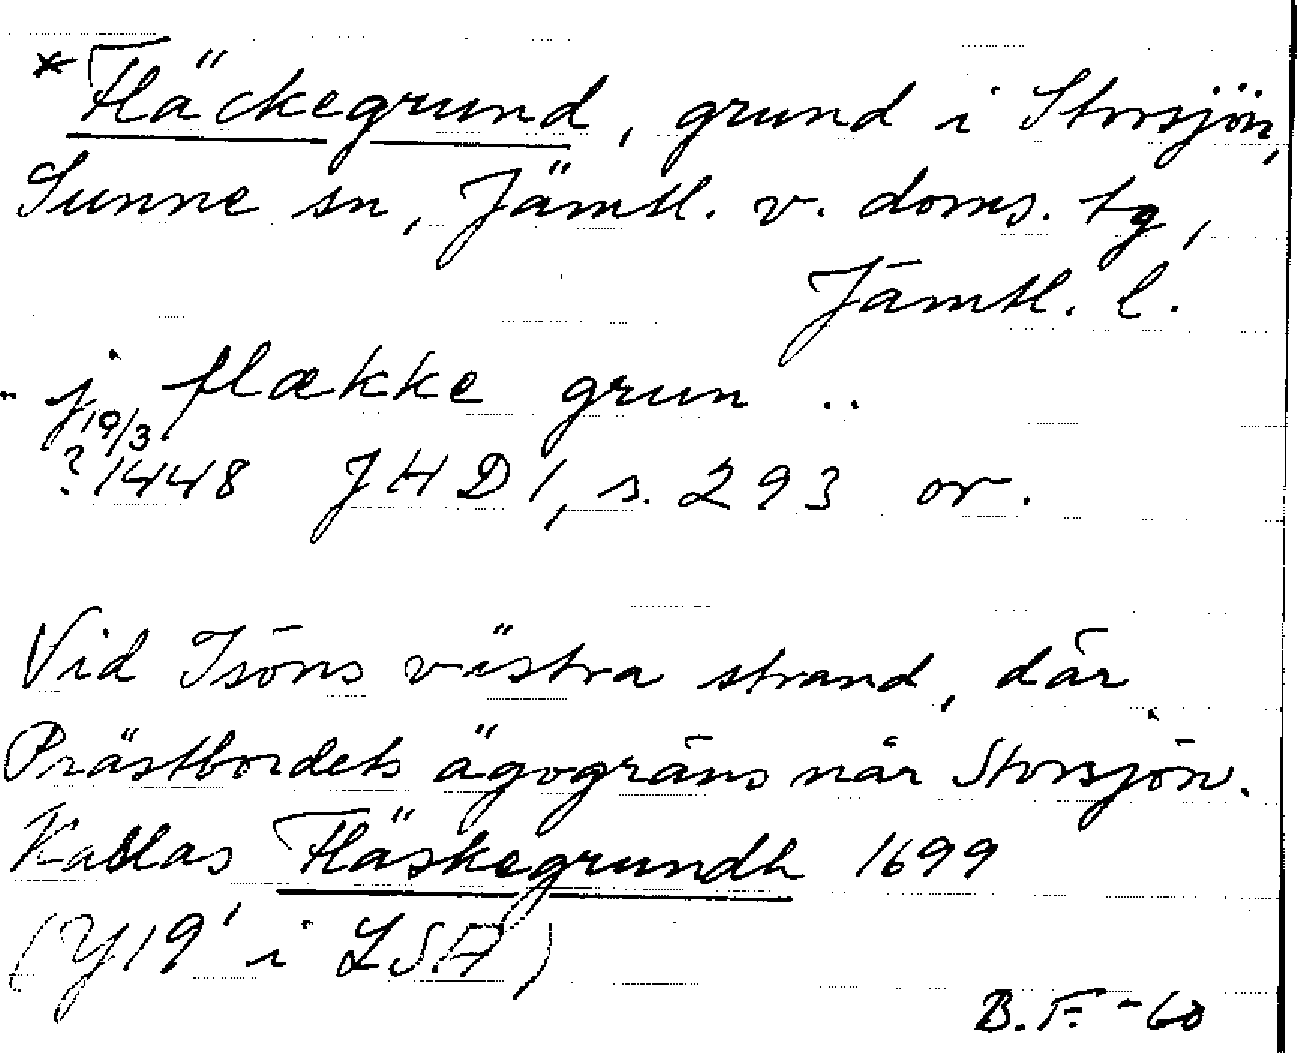 *Fläckegrund, grund i Storsjön,
Sunne sn, Jämtl. v. doms. tg,
Jämtl. l.
.. j flække grun ..
19/3
?1448 JHD 1, s. 293 or.
Vid Isöns västra strand, där
Prästbordets ägogräns når Storsjön.
Kallas Fläskegrundh 1699
(Y19' i LSA)
B.F. -60